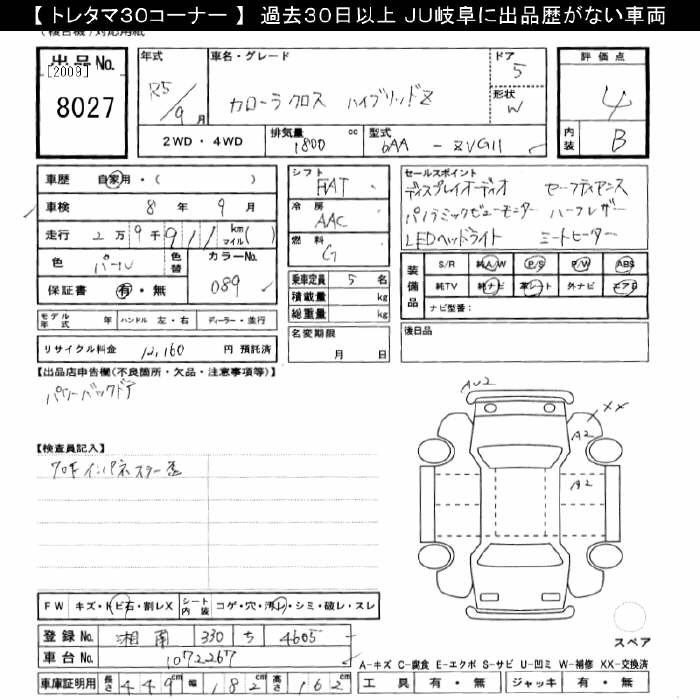 【 トレタマ30コーナー 】 過去30日以上 JU岐阜に出品歴がない車両
出品No.
[2009]
8027
年式
R5/9月
車名・グレード
カローラクロス ハイブリッドZ
ドア
5
形状
W
評価点
4
内装
B
2WD・4WD
排気量
1800 cc
型式
6AA - ZVG11
車歴 自家用・( )
車検 8年 9月
走行 2万9千911 km マイル( )
色 パール
色替
カラーNo.
089
保証書 有・無
モデル年式 年 ハンドル 左・右 ディーラー・並行
リサイクル料金 12,160 円 預託済
シフト
FAT
冷房
AAC
燃料
G
乗車定員 5 名
積載量 kg
総重量 kg
名変期限
月 日
セールスポイント
ディスプレイオーディオ セーフティセンス
パノラミックビューモニター ハーフレザー
LEDヘッドライト シートヒーター
装備品
S/R 純A/W P/S P/W ABS
純TV 純ナビ 革シート 外ナビ エアB
ナビ型番:
後日品
【出品店申告欄(不良箇所・欠品・注意事項等)】
パワーバックドア
【検査員記入】
AU2
XX
A2
A2
FW キズ・トビ石・割レX
シート内装 コゲ・穴・汚レ・シミ・破レ・スレ
登録No. 湘南 330 ち 4605
車台No. 1072267
車庫証明用 長さ 449cm 幅 182cm 高さ 162cm
スペア
A-キズ C-腐食 E-エクボ S-サビ U-凹ミ W-補修 XX-交換済
工具 有・無 ジャッキ 有・無